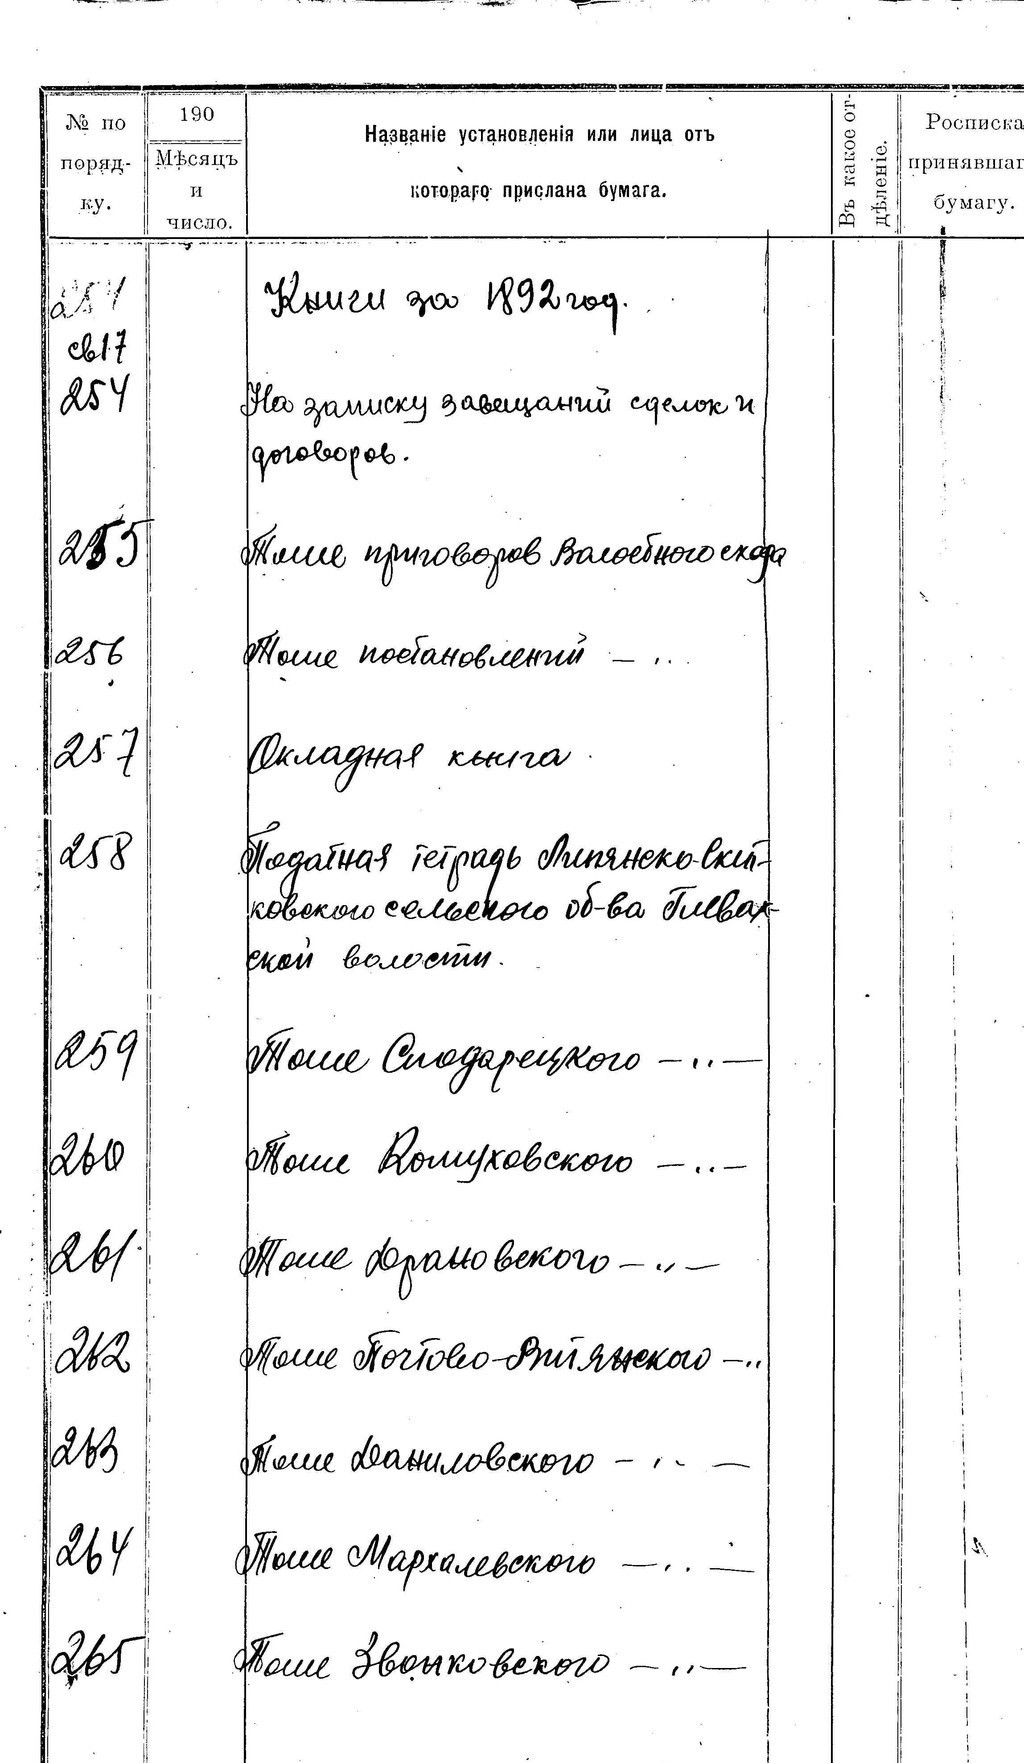 № по
поряд-
ку.
190
Мѣсяцъ
и
число.
Названіе установленія или лица отъ
котораго прислана бумага.
Въ какое от-
дѣленіе.
Росписка
принявшаг
бумагу.
254
Книги за 1892 год.
св17
254
На записку завещаний сделок и
договоров.
255
Тоже приговоров Волостного схода
256
Тоже постановлений — „
257
Окладная книга
258
Податная тетрадь Липянско-Скит-
ковского сельского об-ва Глевах-
ской волости.
259
Тоже — „ —
260
Тоже — „ —
261
Тоже — „ —
262
Тоже Почтово-Витянского — „
263
Тоже Даниловского — „ —
264
Тоже Мархалевского — „ —
265
Тоже Звонковского — „ —